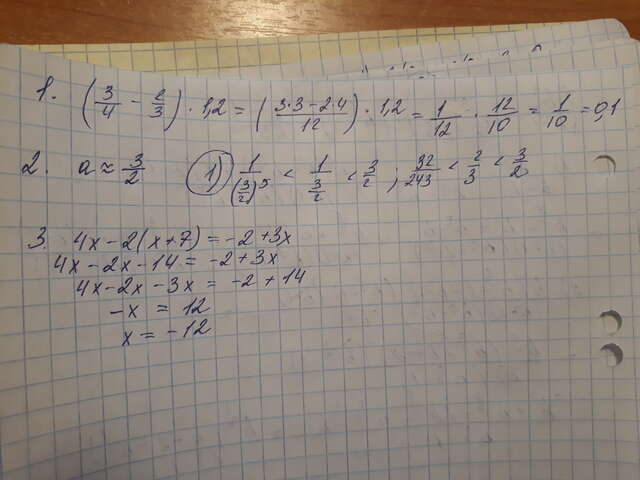 1. (3/4 - 2/3) · 1,2 = (3·3-2·4/12) · 1,2 = 1/12 · 12/10 = 1/10 = 0,1
2. a ≈ 3/2 1) 1/(3/2)⁵ < 1/3/2 < 3/2 ; 32/243 < 2/3 < 3/2
3. 4x - 2(x+7) = -2+3x
4x - 2x - 14 = -2+3x
4x - 2x - 3x = -2+14
-x = 12
x = -12